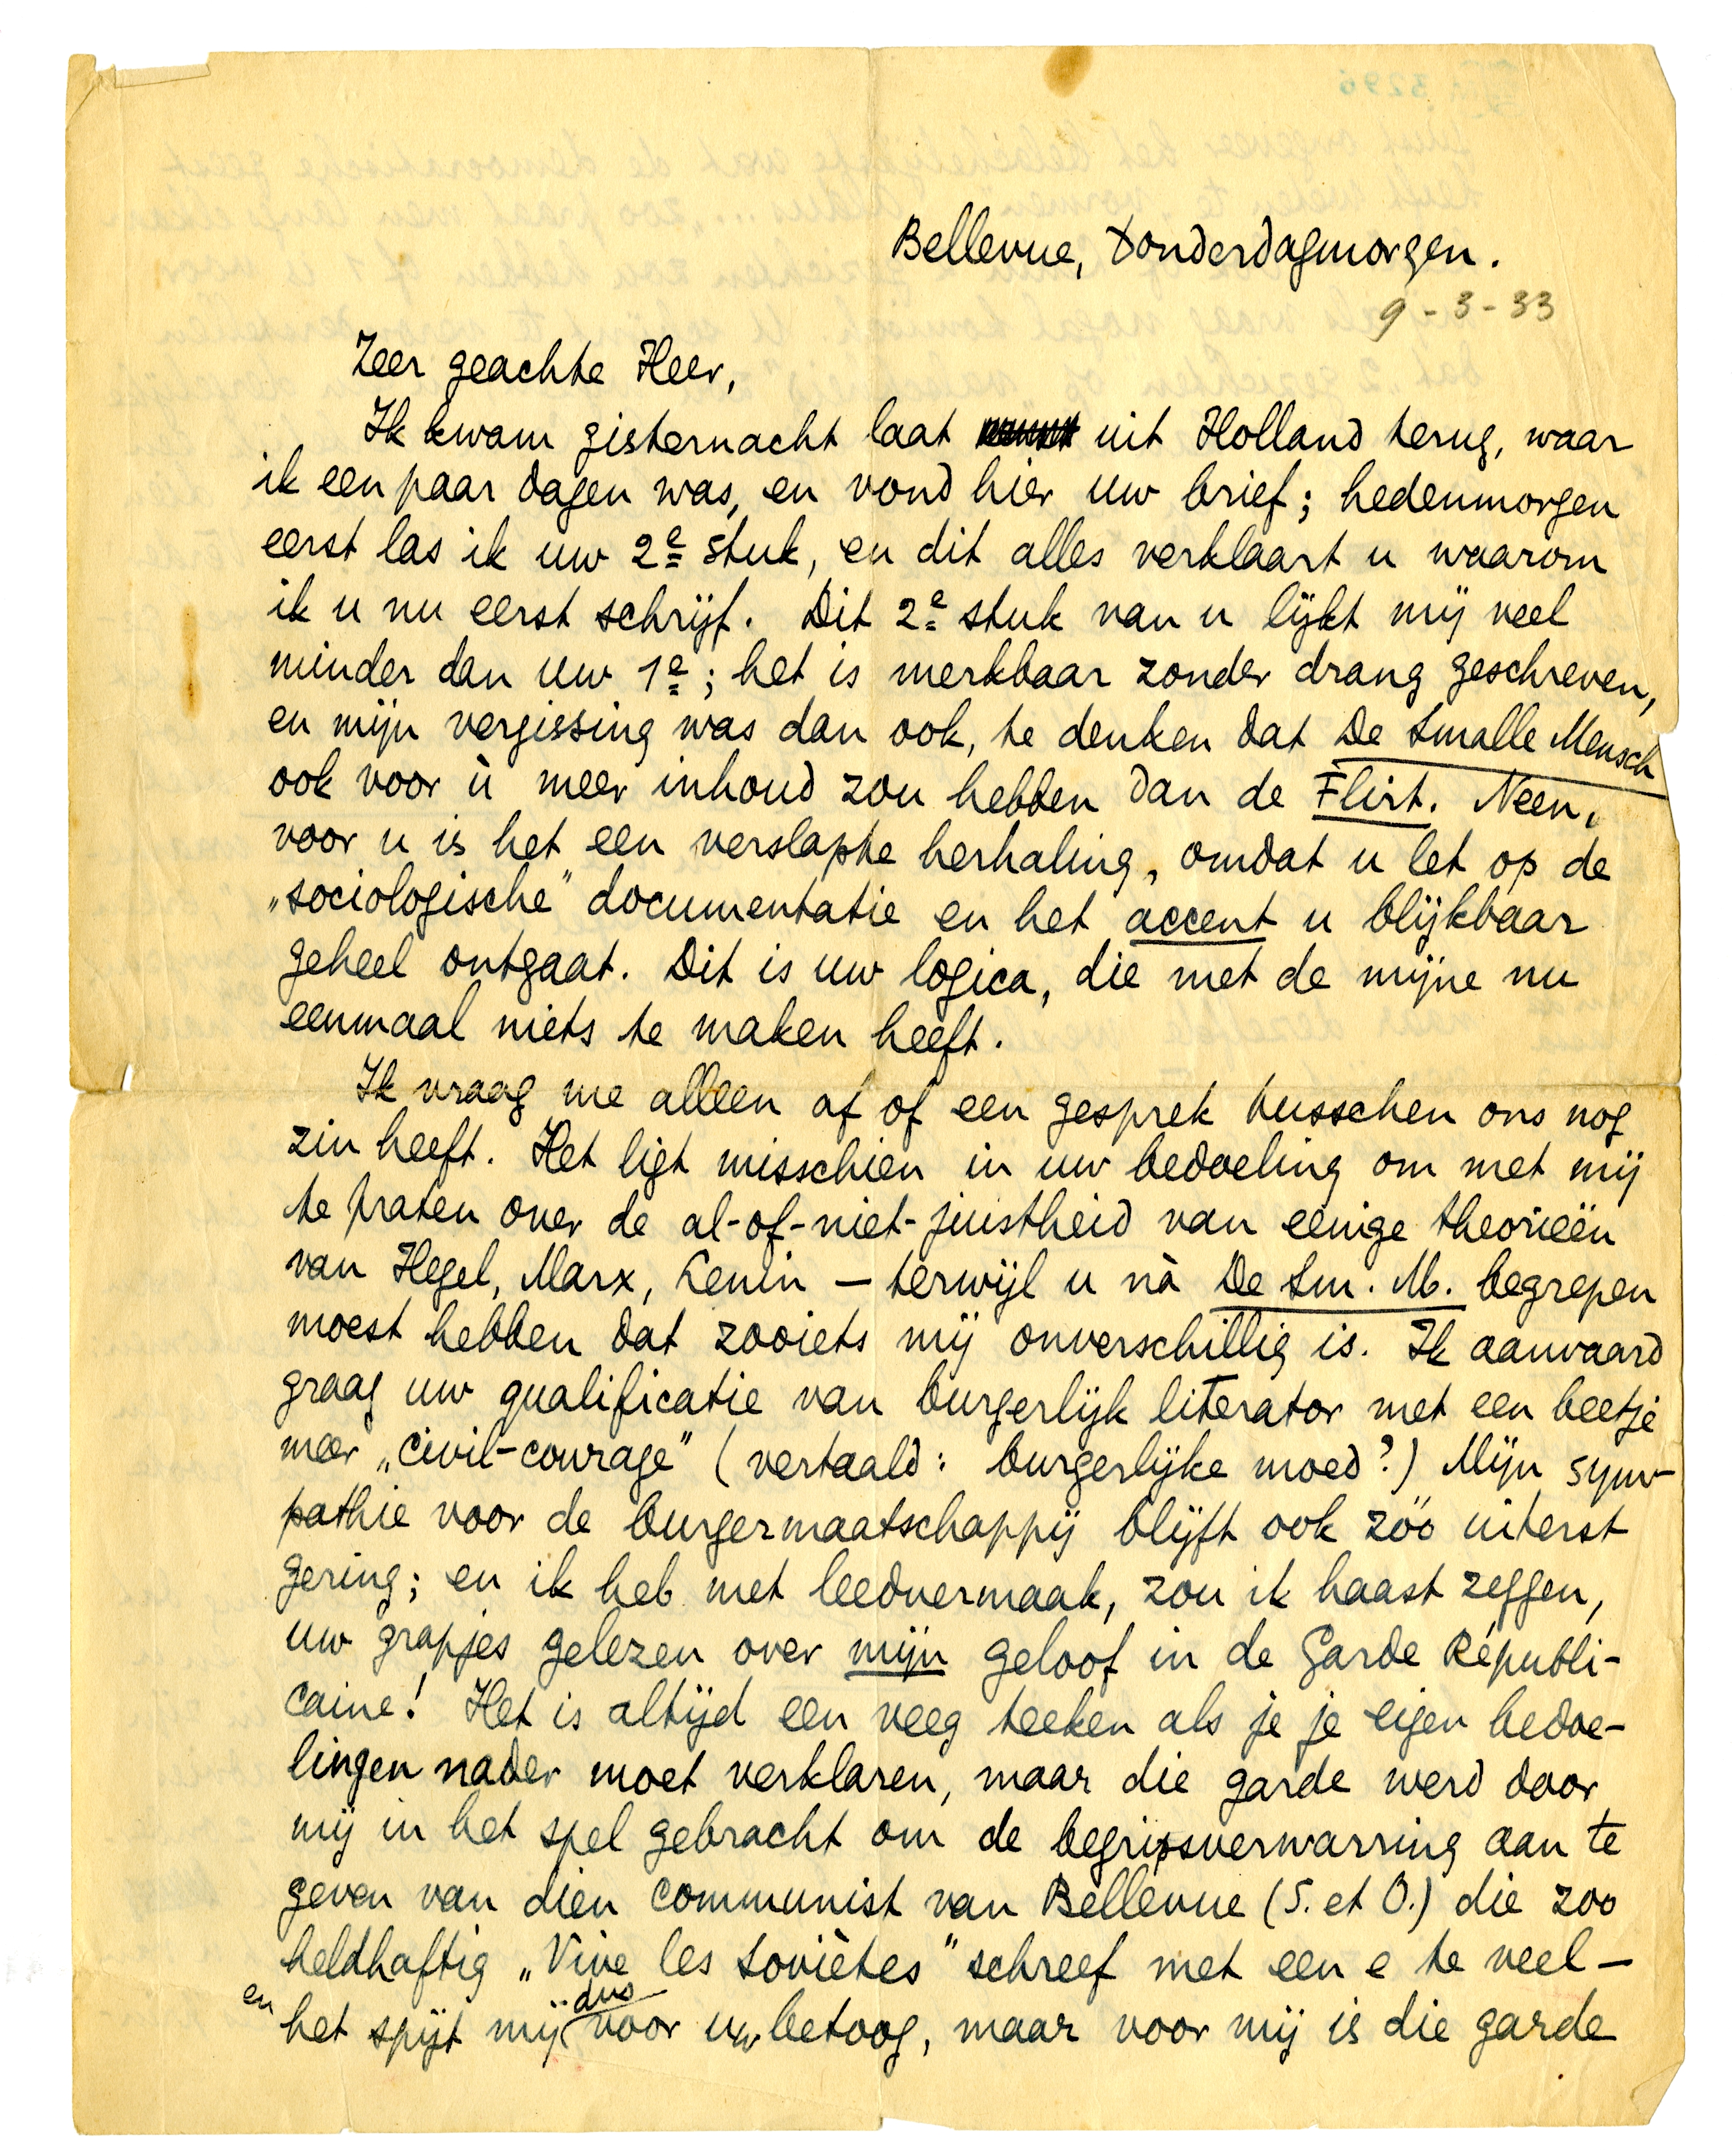 Bellevue, Donderdagmorgen.
9-3-33
Zeer geachte Heer,
Ik kwam gisternacht laat uit Holland terug, waar
ik een paar dagen was, en vond hier uw brief; hedenmorgen
eerst las ik uw 2e stuk, en dit alles verklaart u waarom
ik u nu eerst schrijf. Dit 2e stuk van u lijkt mij veel
minder dan uw 1e; het is merkbaar zonder drang geschreven,
en mijn vergissing was dan ook, te denken dat De Smalle Mensch
ook voor ù meer inhoud zou hebben dan de Flirt. Neen,
voor u is het een verslapte herhaling, omdat u let op de
„sociologische” documentatie en het accent u blijkbaar
geheel ontgaat. Dit is uw logica, die met de mijne nu
eenmaal niets te maken heeft.
Ik vraag me alleen af of een gesprek tusschen ons nog
zin heeft. Het ligt misschien in uw bedoeling om met mij
te praten over de al-of-niet-juistheid van eenige theorieën
van Hegel, Marx, Lenin — terwijl u nà De Sm. M. begrepen
moest hebben dat zooiets mij onverschillig is. Ik aanvaard
graag uw qualificatie van burgerlijk literator met een beetje
meer „civil-courage” (vertaald: burgerlijke moed?) Mijn sym-
pathie voor de burgermaatschappij blijft ook zóó uiterst
gering; en ik heb met leedvermaak, zou ik haast zeggen,
uw grapjes gelezen over mijn geloof in de Garde Républi-
caine! Het is altijd een veeg teeken als je je eigen bedoe-
lingen nader moet verklaren, maar die garde werd door
mij in het spel gebracht om de begripsverwarring aan te
geven van dien communist van Bellevue (S. et O.) die zoo
heldhaftig „Vive les Soviètes” schreef met een e te veel —
en het spijt mij dus voor uw betoog, maar voor mij is die garde